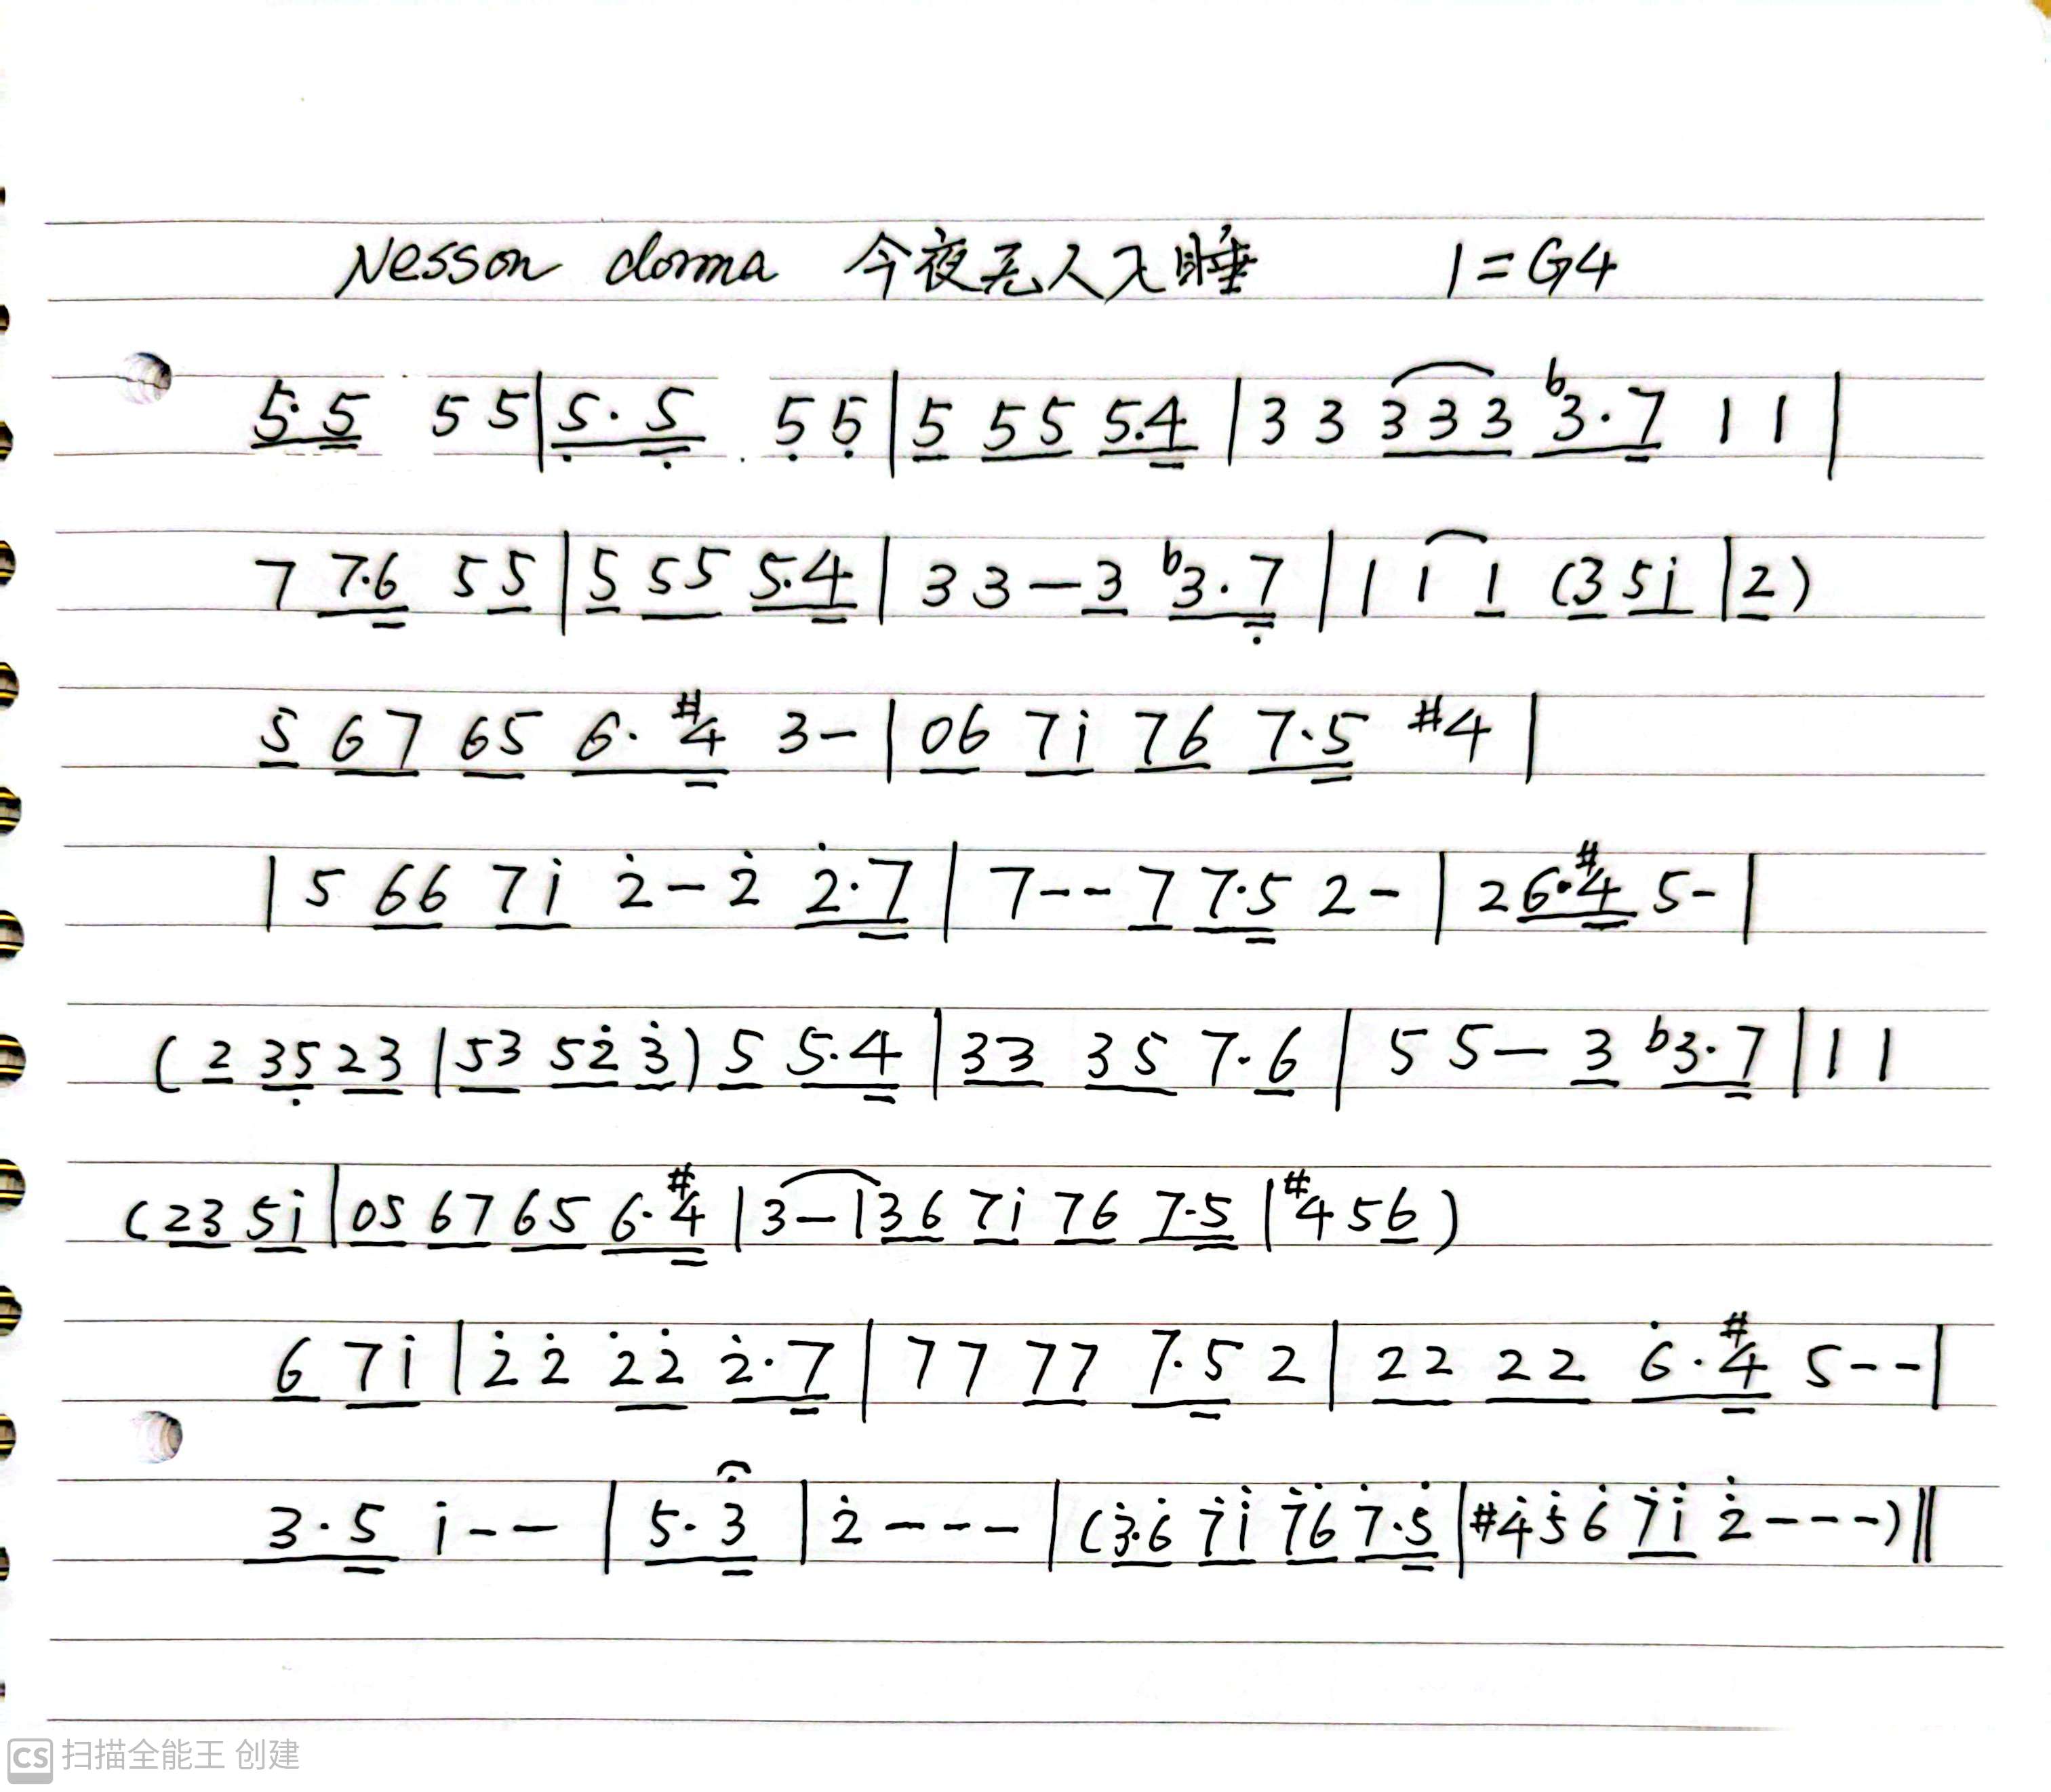 Nesson dorma 今夜无人入睡 1=G4
5·5 55|5·5 55|5 55 5·4|33 333 b3·7 11|
7 7·6 55|5 55 5·4|33—3 b3·7|1 1 1 (3 5i|2)
5 67 65 6·#4 3-|06 7i 76 7·5 #4|
|5 66 7i 2̇-2̇ 2̇·7|7--7 7·5 2-|2 6·#4 5-|
(2 35 23|53 52̇ 3̇) 5 5·4|33 35 7·6|55—3 b3·7|11
(23 5i|05 67 65 6·#4|3-|36 7i 76 7·5|#4 56)
6 7i|2̇2̇ 2̇2̇ 2̇·7|77 77 7·5 2|22 22 6̇·#4 5--|
3·5 i--|5·3̇|2̇---|(3̇·6̇ 7̇i 7̇6̇ 7̇·5̇|#4̇5̇6̇ 7̇i 2̇---)‖
CS 扫描全能王 创建